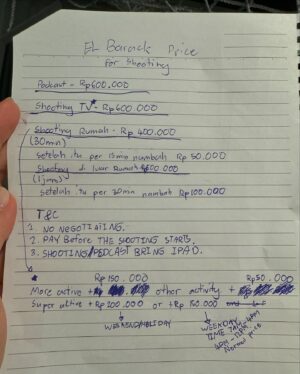 EL Barack Price
for shooting
Podcast - Rp600.000
Shooting TV* - Rp600.000
Shooting Rumah - Rp400.000
(30min)
setelah itu per 15min nambah Rp 50.000
Shooting di luar Rumah 600.000
(1jam)
setelah itu per 30min nambah Rp100.000
T&C
1. NO NEGOTIAIING.
2. PAY Before THE SHOOTING STARTS.
3. SHOOTING/PODCAST BRING IPAD.
* Rp 150.000 Rp50.000
More active + other activity +
Super active + Rp 200.000 or + Rp 150.000
WEEKEND/HOLIDAY WEEKDAY
TIME
Normal price